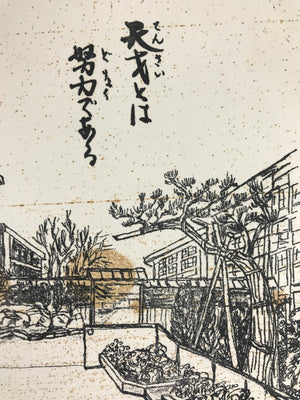 天才とは
努力である
てんさい
どりょく